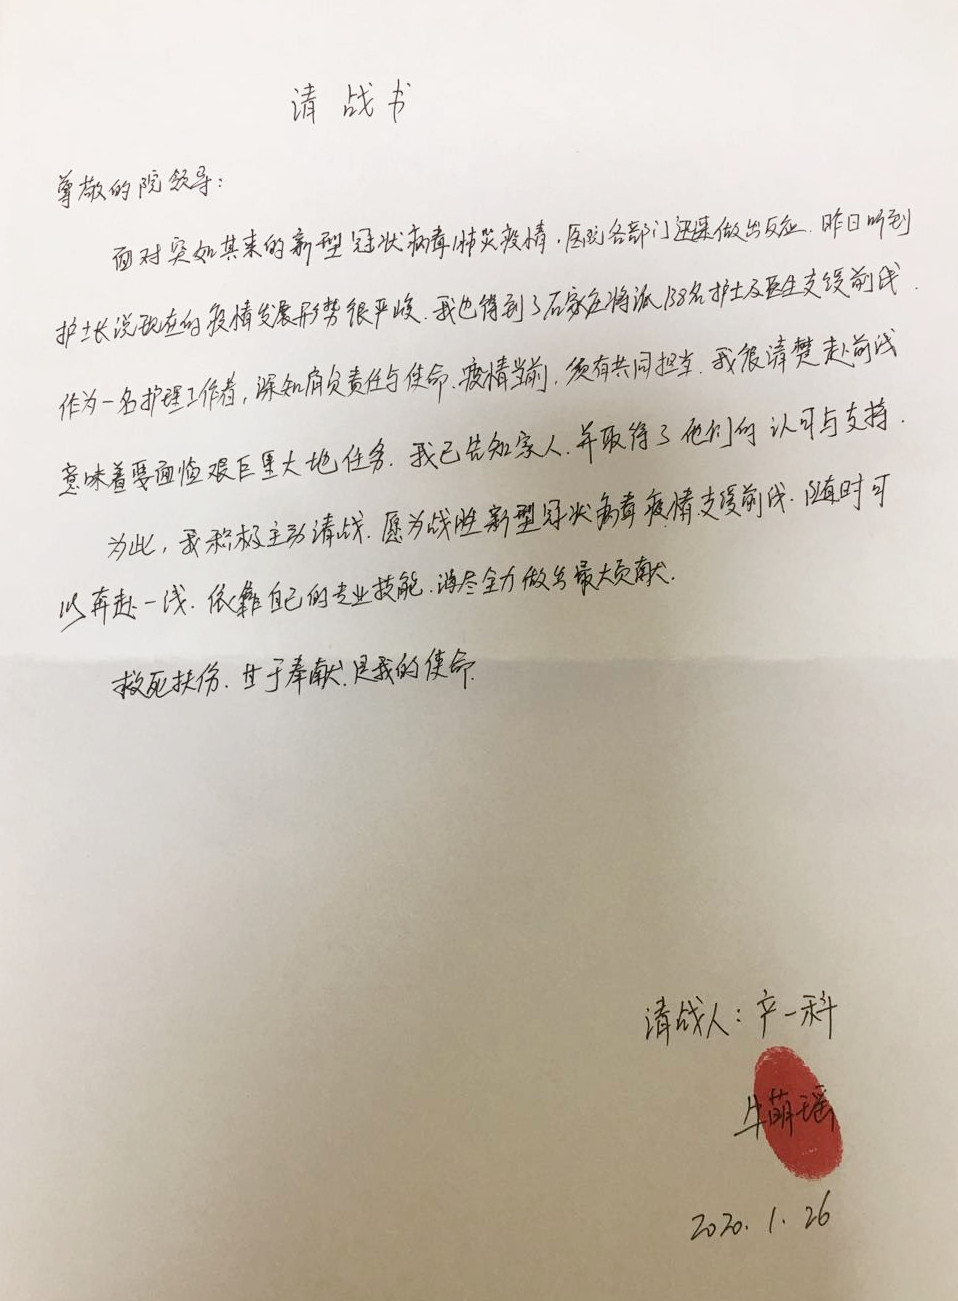 请战书
尊敬的院领导：
面对突如其来的新型冠状病毒肺炎疫情，医院各部门迅速做出反应．昨日听到
护士长说现在的疫情发展形势很严峻．我也得到了石家庄将派138名护士及医生支援前线．
作为一名护理工作者，深知肩负责任与使命．疫情当前，须有共同担当．我很清楚赴前线
意味着要面临艰巨重大地任务．我已告知家人．并取得了他们的认可与支持．
为此，我积极主动请战．愿为战胜新型冠状病毒疫情支援前线．随时可
以奔赴一线．依靠自己的专业技能．竭尽全力做出最大贡献．
救死扶伤．甘于奉献．是我的使命．
请战人：产一科
牛萌瑶
2020.1.26